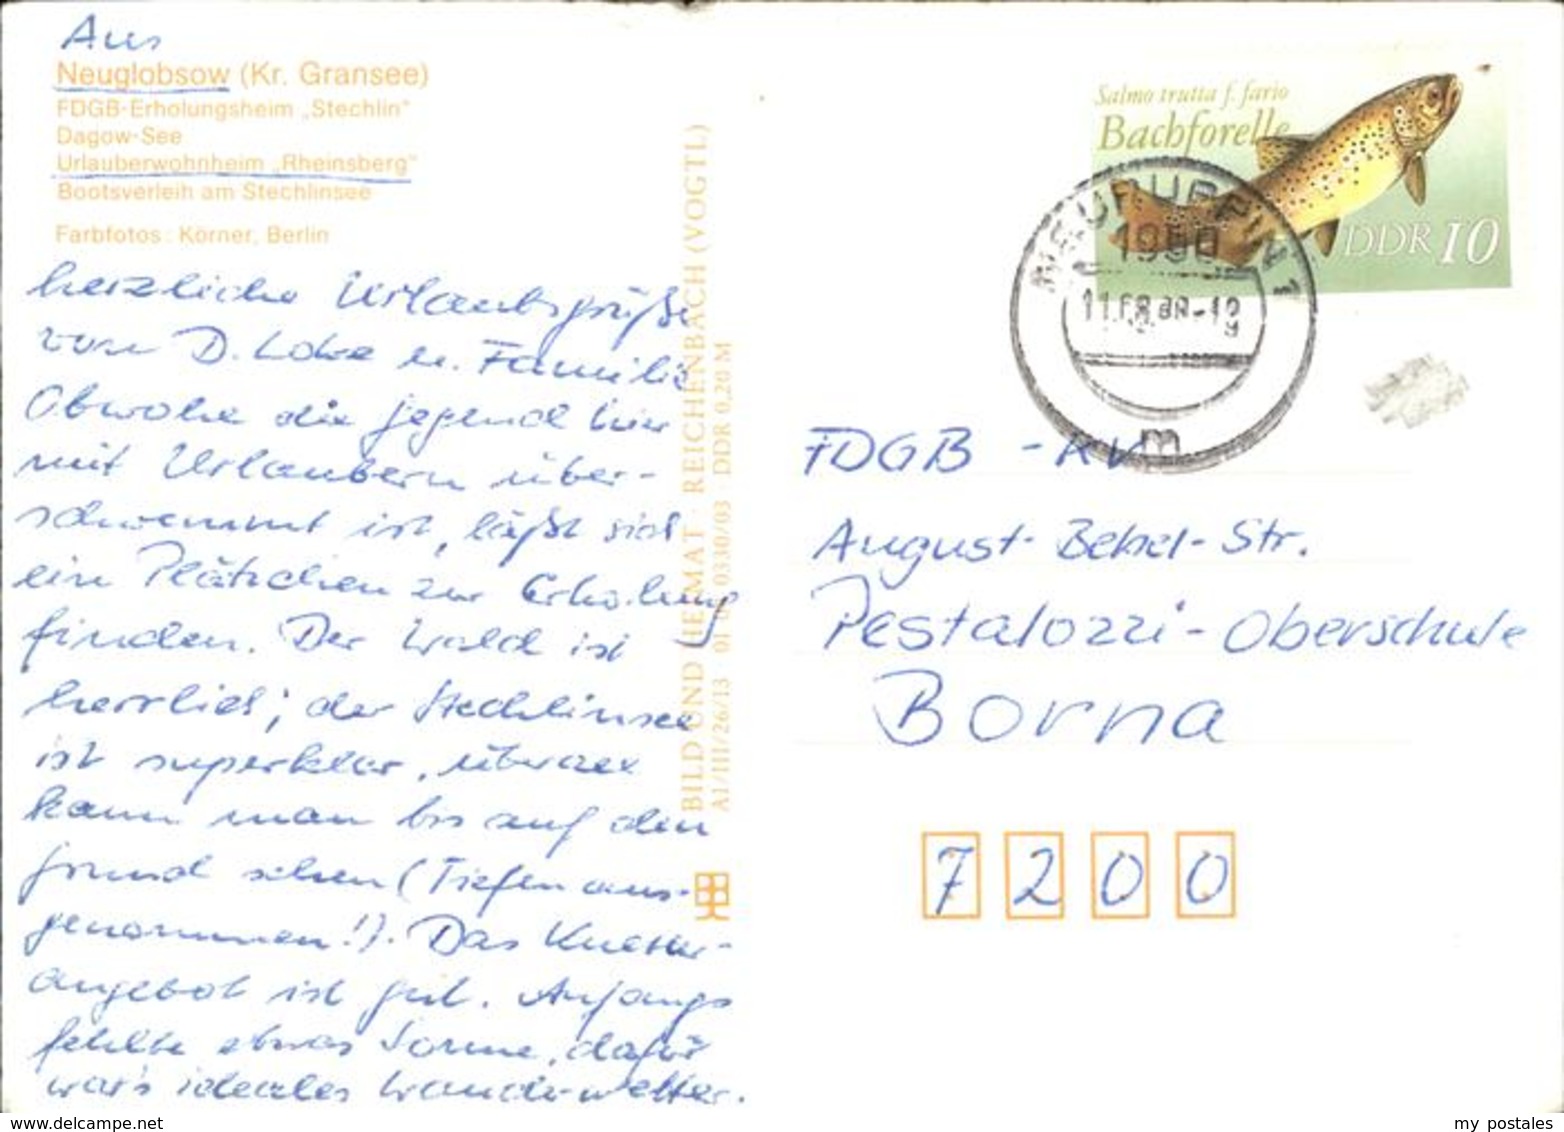 Aus
Neuglobsow (Kr. Gransee)
FDGB-Erholungsheim „Stechlin"
Dagow-See
Urlauberwohnheim „Rheinsberg"
Bootsverleih am Stechlinsee
Farbfotos: Körner, Berlin
herzliche Urlaubsgrüße
von D. u. Familie
Obwohl die Gegend hier
mit Urlaubern über-
schwemmt ist, läßt sich
ein Plätzchen zur Erholung
finden. Der Wald ist
herrlich; der Stechlinsee
ist superklar, überall
kann man bis auf den
Grund sehen (Tiefen aus-
genommen!). Das
angebot ist gut. Anfangs
fehlte etwas Sonne, dafür
war's ideales Wanderwetter.
BILD UND HEIMAT · REICHENBACH (VOGTL)
A1/III/26/13 0330/03 DDR 0,20 M
Salmo trutta f. fario
Bachforelle
DDR 10
NEURUPPIN 1
m
FDGB - KV
August-Bebel-Str.
Pestalozzi-Oberschule
Borna
7200
www.delcampe.net
my postales